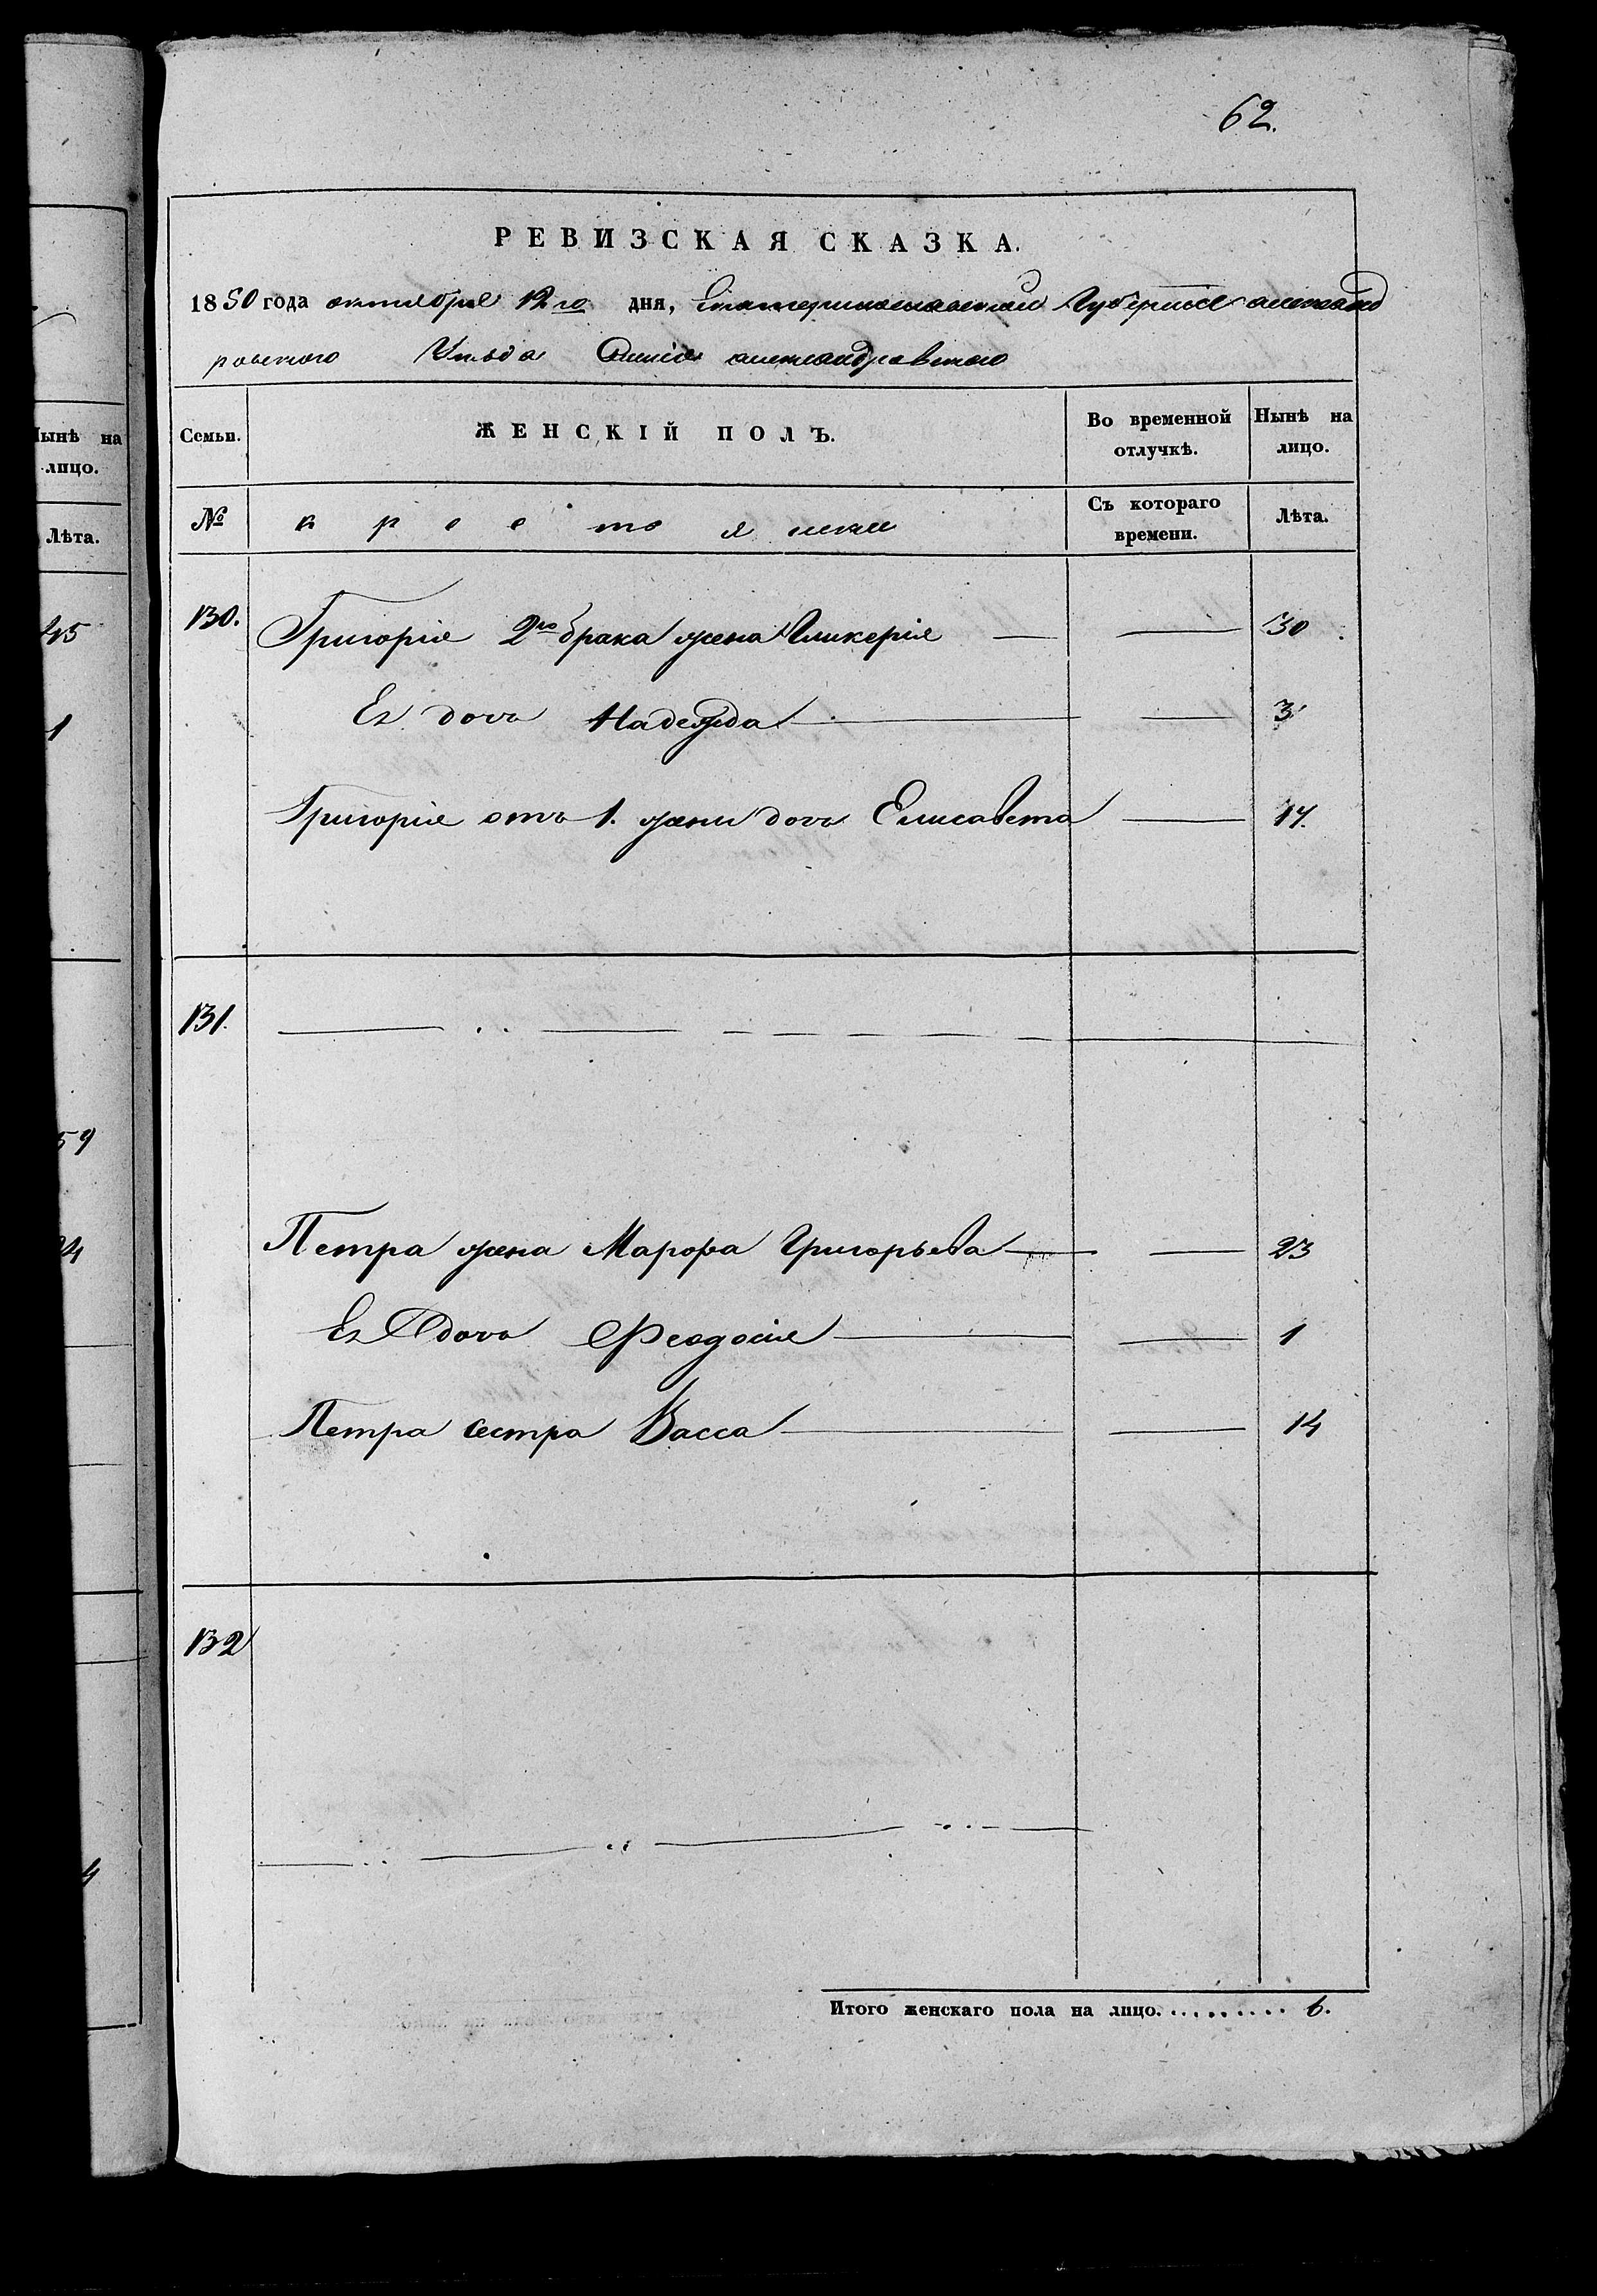 62.
РЕВИЗСКАЯ СКАЗКА.
1850 года октября 12го дня, Екатеринославской Губернии александ
ровского Уезда Селения александровского
Семьи. ЖЕНСКІЙ ПОЛЪ. Во временной отлучкѣ. Нынѣ на лицо.
№ крестьянки Съ котораго времени. Лѣта.
130. Григорія 2го брака жена Гликерія — — 30
Ея дочь Надежда — — 3
Григорія отъ 1. жены дочь Елисавета — 17.
131.
Петра жена Марфа Григорьева — — 23
Ея дочь Феодосія — — 1
Петра сестра Васса — — 14
132
Итого женскаго пола на лицо. . . . . . . . . . 6.
ынѣ на
лицо.
Лѣта.
45
1
59
24
4